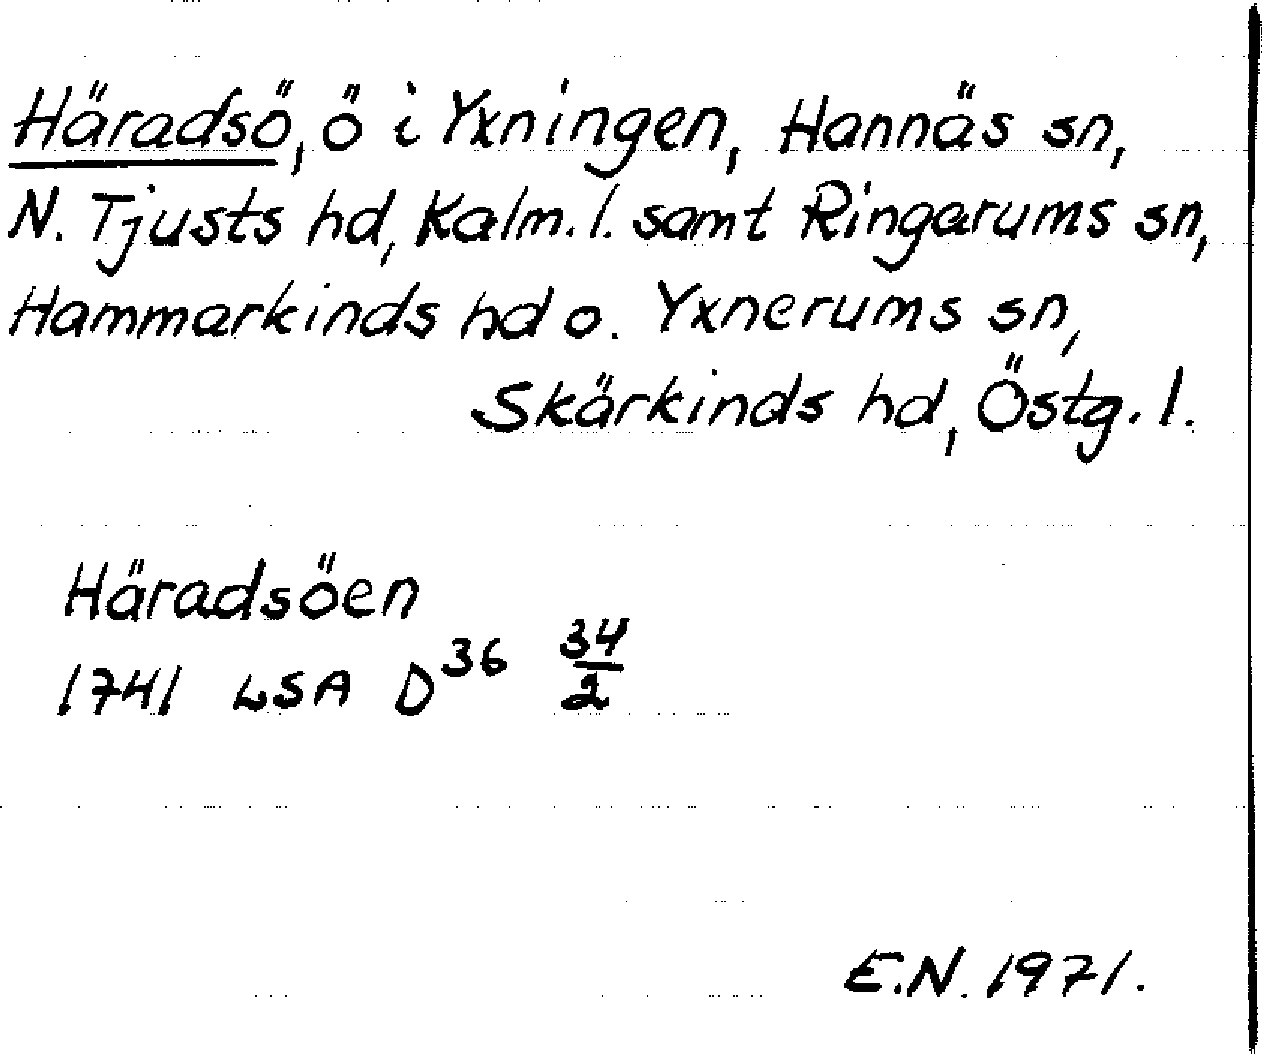 Häradsö, ö i Yxningen, Hannäs sn,
N. Tjusts hd, Kalm. l. samt Ringarums sn,
Hammarkinds hd o. Yxnerums sn,
Skärkinds hd, Östg. l.
Häradsöen
1741 LSA D36 34/2
E.N. 1971.